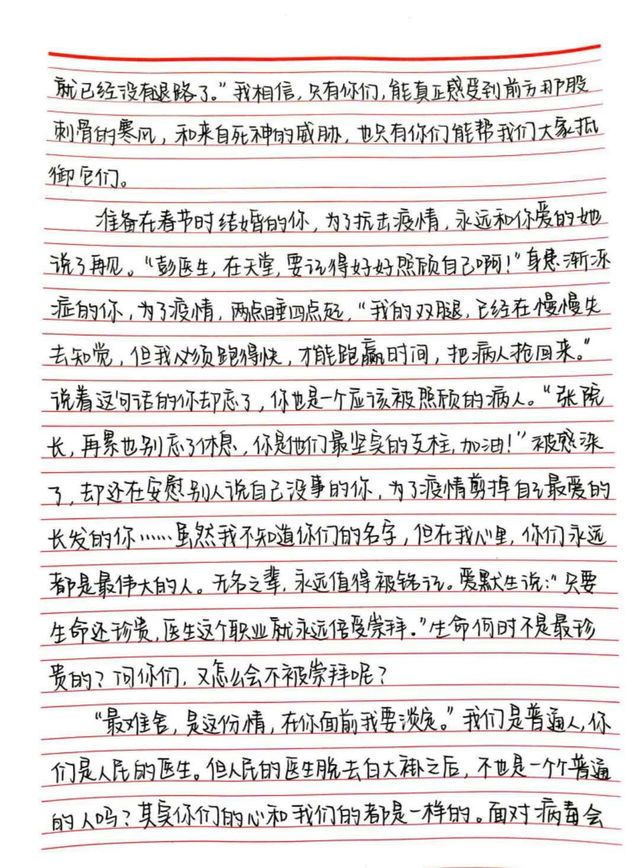 就已经没有退路了。”我相信,只有你们,能真正感受到前方那股
刺骨的寒风,和来自死神的威胁,也只有你们能帮我们大家抵
御它们。
准备在春节时结婚的你,为了抗击疫情,永远和你爱的她
说了再见。“彭医生,在天堂,要记得好好照顾自己啊!”身患渐冻
症的你,为了疫情,两点睡四点起,“我的双腿,已经在慢慢失
去知觉,但我必须跑得快,才能跑赢时间,把病人抢回来。”
说着这句话的你却忘了,你也是一个应该被照顾的病人。“张院
长,再累也别忘了休息,你是他们最坚实的支柱,加油!”被感染
了,却还在安慰别人说自己没事的你,为了疫情剪掉自己最爱的
长发的你……虽然我不知道你们的名字,但在我心里,你们永远
都是最伟大的人。无名之辈,永远值得被铭记。爱默生说:“只要
生命还珍贵,医生这个职业就永远倍受崇拜.”生命何时不是最珍
贵的?问你们,又怎么会不被崇拜呢?
“最难舍,是这份情,在你面前我要淡定。”我们是普通人,你
们是人民的医生。但人民的医生脱去白大褂之后,不也是一个个普通
的人吗?其实你们的心和我们的都是一样的。面对病毒会